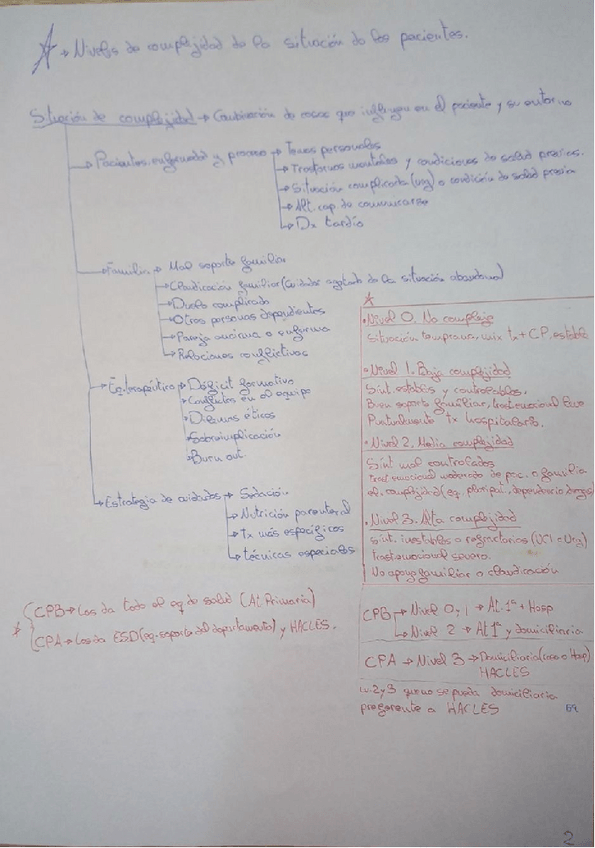 → Niveles de complejidad de la situación de los pacientes.
Situación de complejidad → Combinación de cosas que influyen en el paciente y su entorno
→ Pacientes, enfermedad y proceso → Temas personales
→ Trastornos mentales y condiciones de salud previas.
→ Situación complicada (urg) o condición de salud previa
→ Alt. cap. de comunicarse
→ Dx tardío
→ Familia → Mal soporte familiar
→ Claudicación familiar (Cuidador agotado de la situación abandona)
→ Duelo complicado
→ Otras personas dependientes
→ Pareja anciana o enferma
→ Relaciones conflictivas
→ Eq. terapéutico → Déficit formativo
→ Conflictos en el equipo
→ Dilemas éticos
→ Sobreimplicación
→ Burn out.
→ Estrategia de cuidados → Sedación
→ Nutrición parenteral
→ Tx más específicos
→ técnicas especiales
• Nivel 0. No compleja
Situación temprana, mix tx + CP, estable
• Nivel 1. Baja complejidad
Sínt. estables y controlables.
Buen soporte familiar, trast. emocional leve
Puntualmente tx hospitalario.
• Nivel 2. Media complejidad
Sínt mal controlados
Trast emocional moderado de pac. o familia
el. complejidad (ej. , dependencia drogas)
• Nivel 3. Alta complejidad
Sínt. inestables o refractarios (UCI = Urg)
trast emocional severo.
No apoyo familiar o claudicación
CPB → Nivel 0, 1 → At. 1ª + Hosp.
→ Nivel 2 → At 1ª y domiciliaria
CPA → Nivel 3 → Domiciliaria (uso o Hosp)
HACLES
2 y 3 que no se pueda domiciliaria
preferente a HACLES
* CPB → Los da todo el eq. de salud (At. Primaria)
CPA → Los da ESD (eq. soporte del departamento) y HACLES.
2